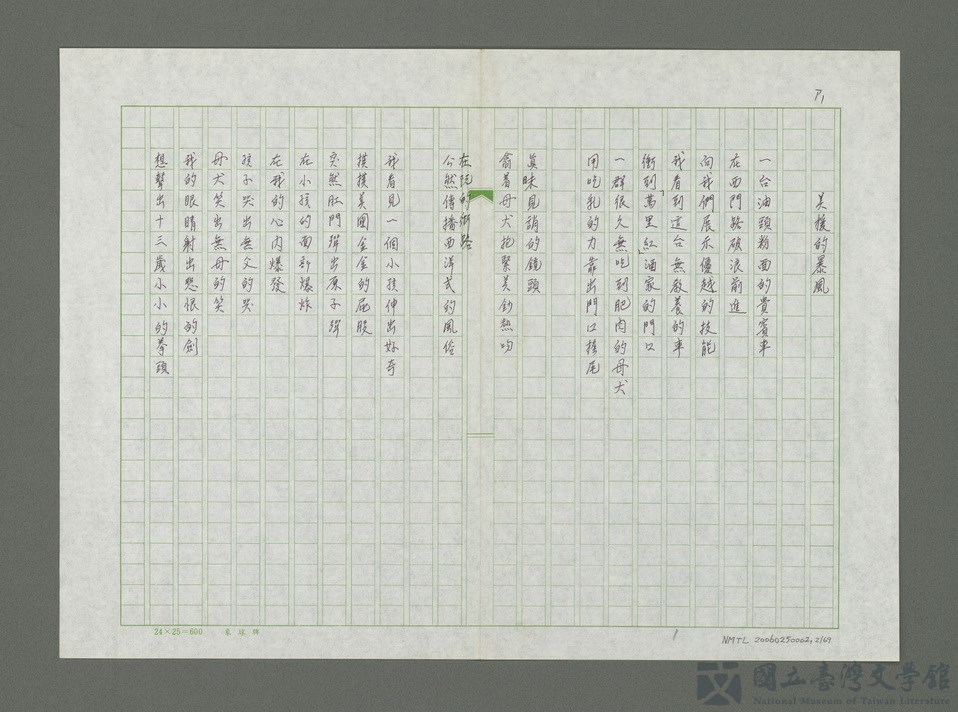 P1
美援的暴風
一台油頭粉面的貴賓車
在西門路破浪前進
向我們展示優越的技能
我看到這台無教養的車
衝到「萬里紅」酒家的門口
一群很久無吃到肥肉的母犬
用吃乳的力 靠出門口搖尾
真昧見誚的鏡頭
翕著母犬抱緊美鈔熱吻
在阮的街路
公然傳播西洋式的風俗
我看見一個小孩伸出好奇
摸摸美國金金的屁股
突然肛門彈出原子彈
在小孩的面部爆炸
在我的心內爆發
孩子哭出無父的哭
母犬笑出無母的笑
我的眼睛射出悲恨的劍
想擊出十三歲小小的拳頭
24×25=600
1
NMTL 20060250002, 2/69
國立臺灣文學館
National Museum of Taiwan Literature